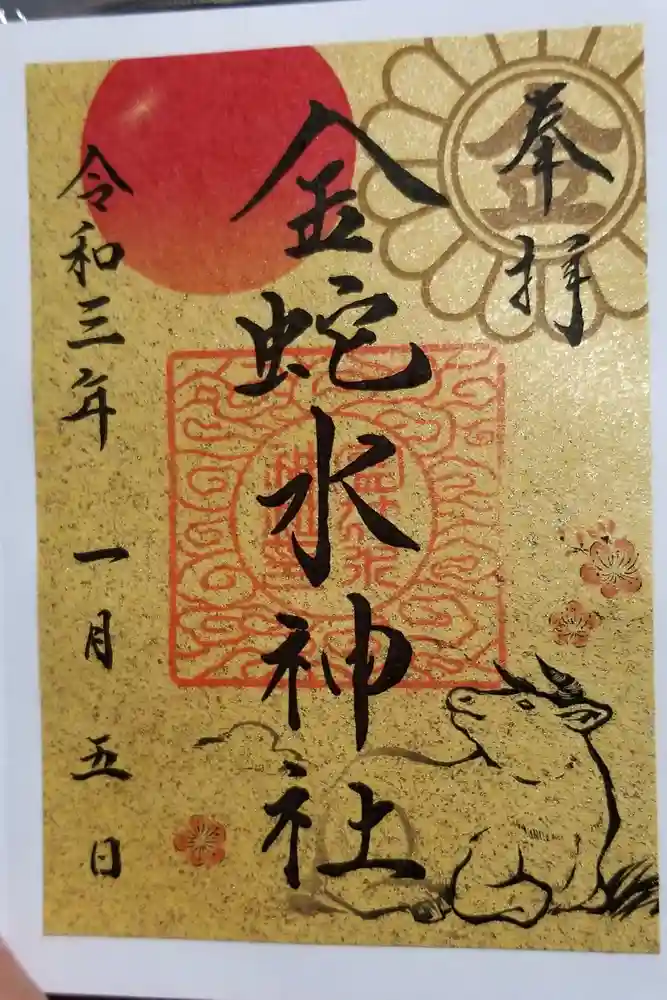 奉拝
金
金蛇水神社
令和三年 一月 五日